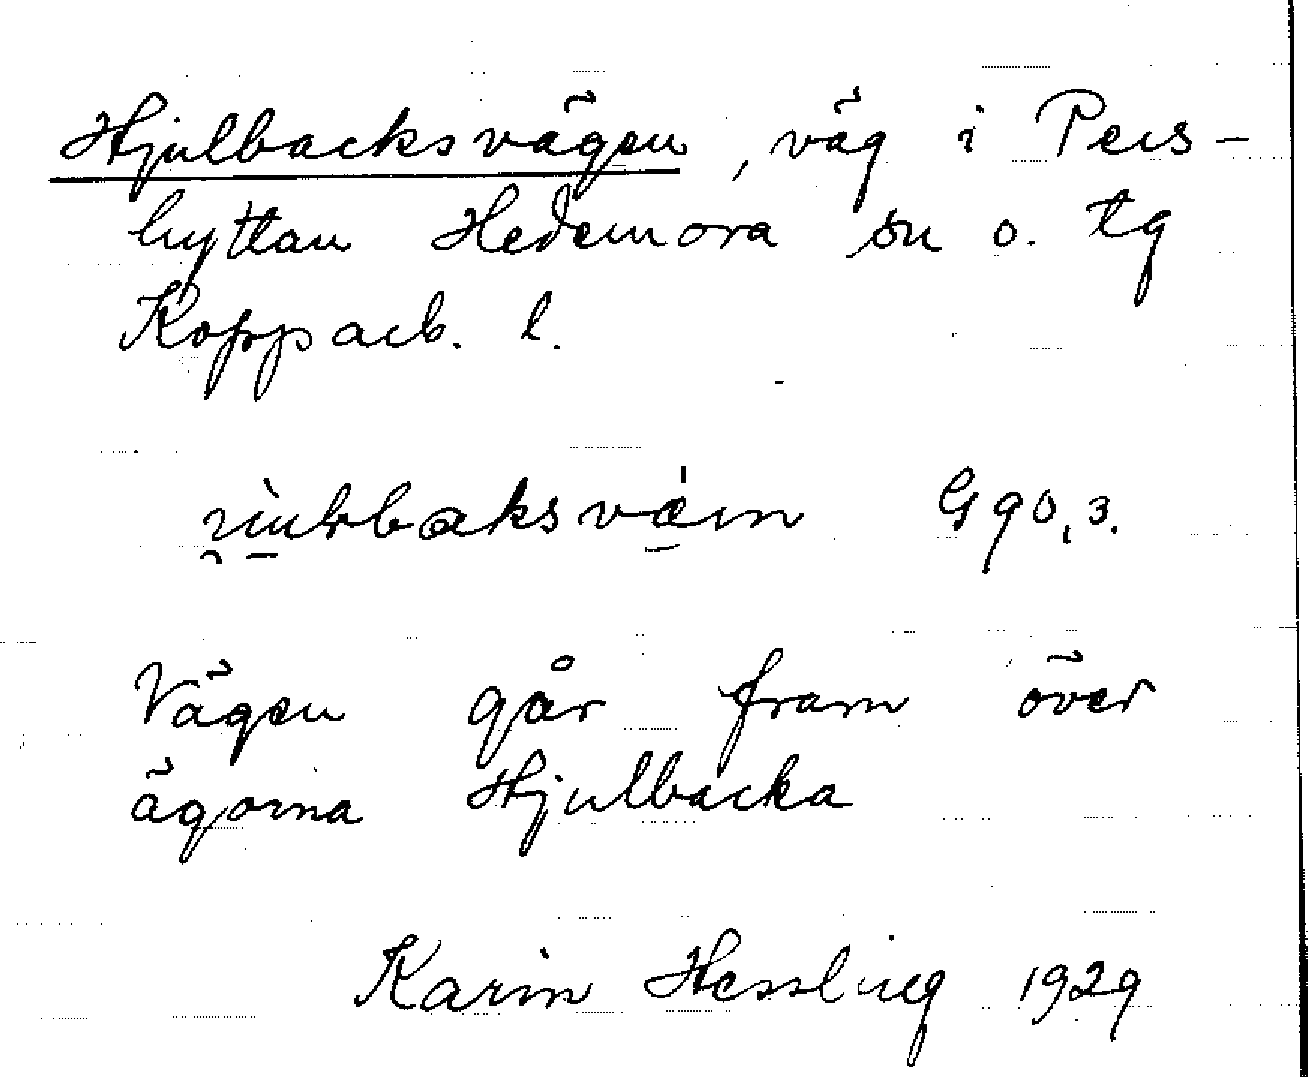 Hjulbacksvägen, väg i Pers-
hyttan Hedemora sn o. tg
Kopparb. l.
G 90,3.
Vägen går fram över
ägorna Hjulbacka
Karin Hessling 1929